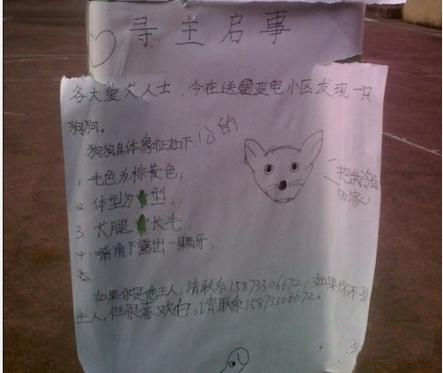 寻主启事
各大爱犬人士,今在送变电小区发现一只
狗狗。
狗狗具体象征如下:公的
1. 毛色为棕黄色;
2. 体型为型,
3. 大腿长毛,
4. 嘴角下露出一颗牙,
把我领
回家~
如果你是他主人,请联系15873306672,如果你不是
主人,但很喜欢它,请联系15873306672。